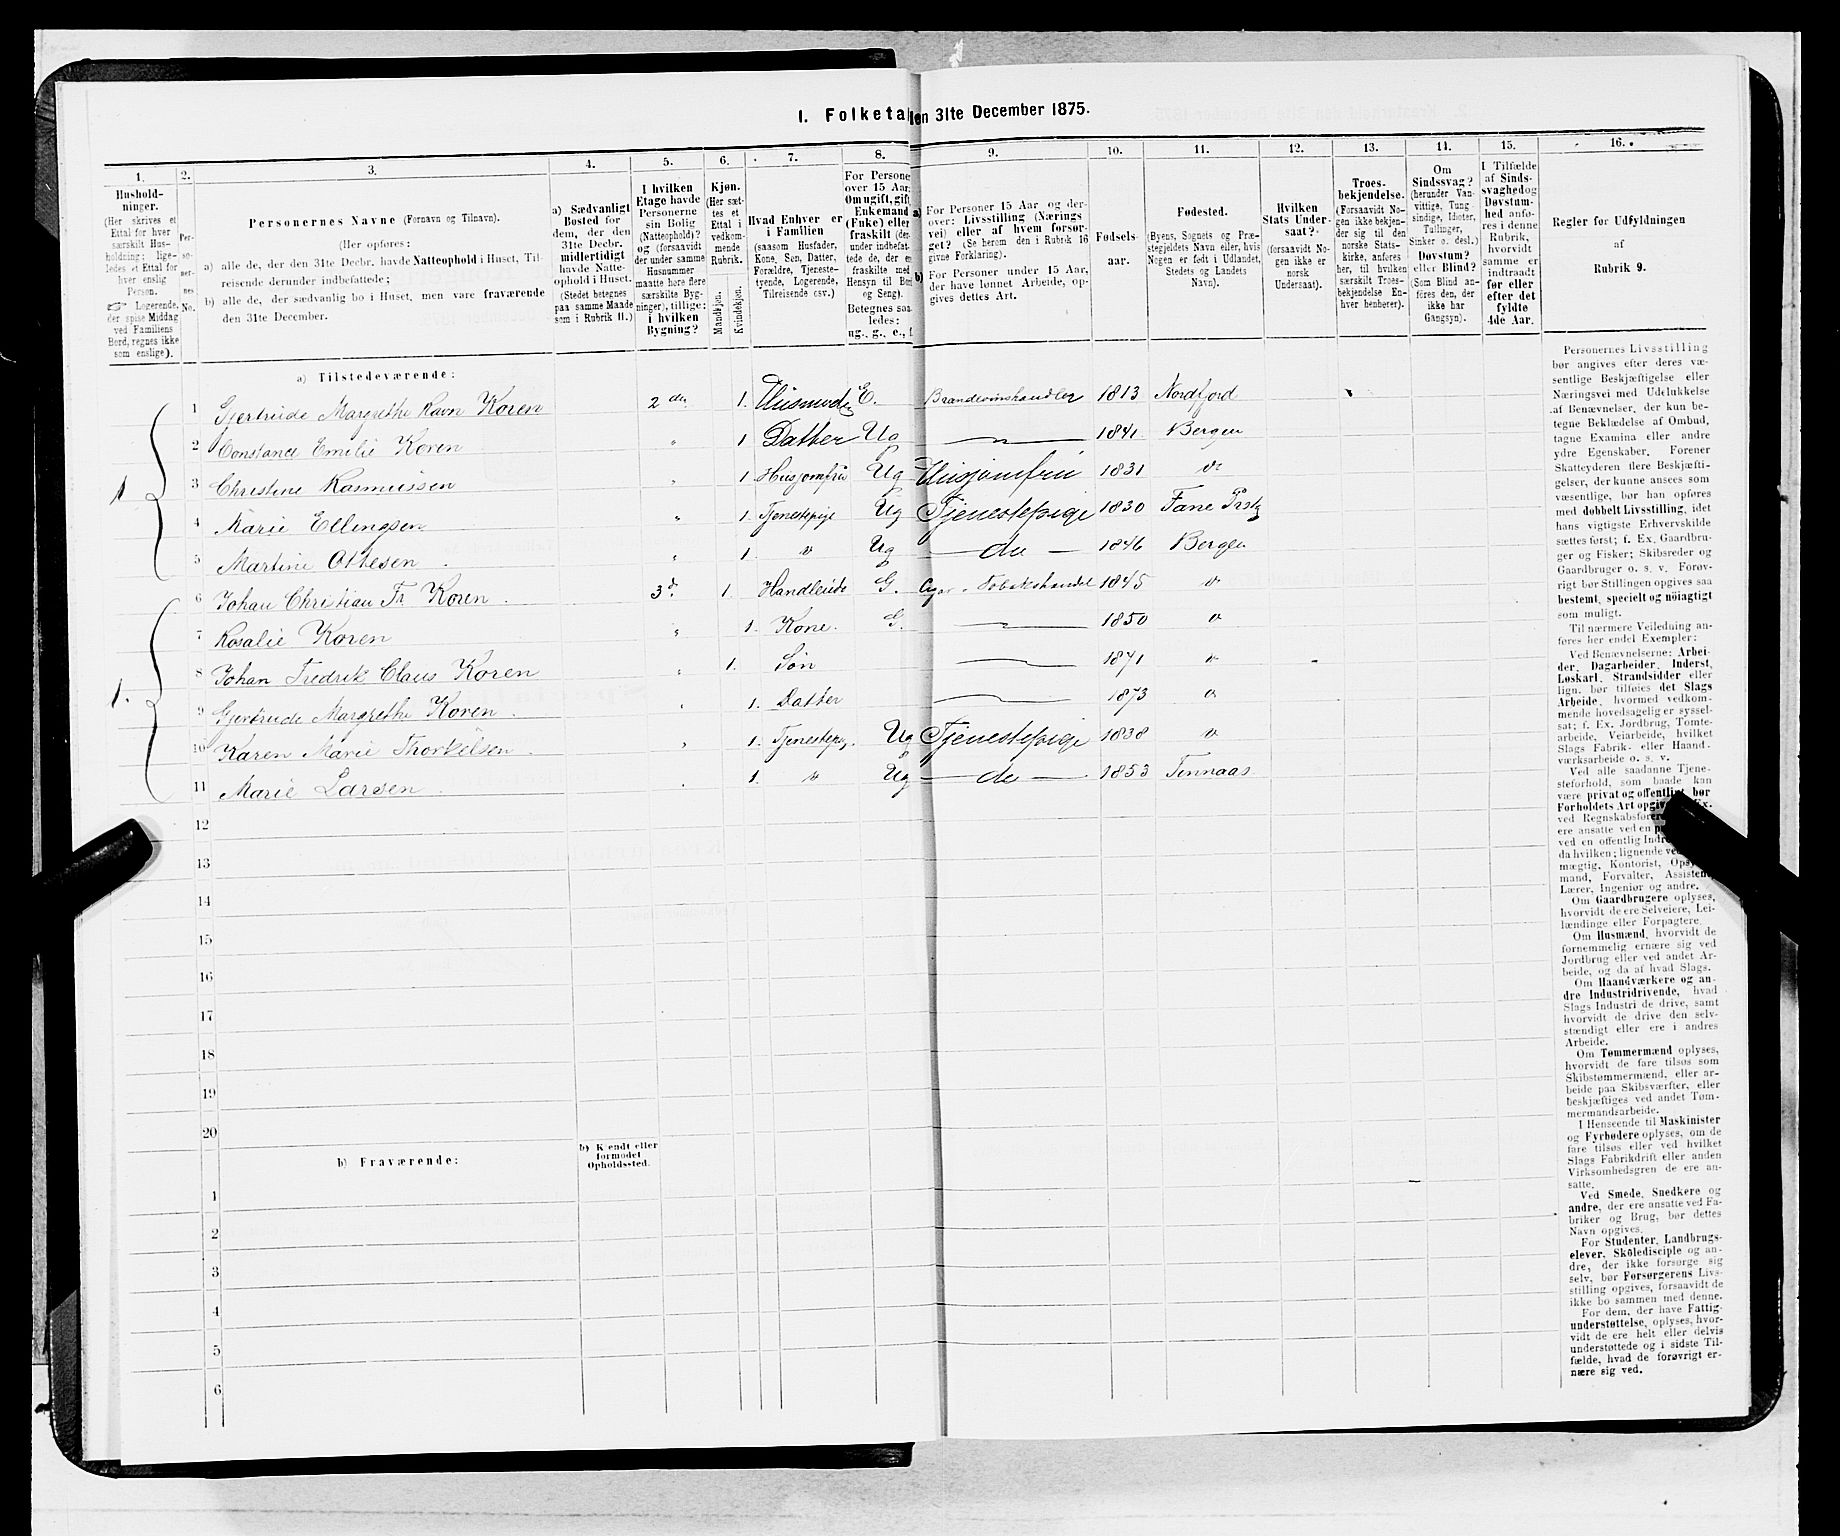 I. Folketal den 31te December 1875.
1. 2. 3. 4. 5. 6. 7. 8. 9. 10. 11. 12. 13. 14. 15. 16.
Hushold-
ninger.
(Her skrives et
Ettal for hver
særskilt Hus-
holdning; lige-
ledes et Ettal for
hver enslig
Person.
☞ Logerende,
der spise Middag
ved Familiens
Bord, regnes ikke
som enslige).
Per-
so-
ner-
nes
No.
Personernes Navne (Fornavn og Tilnavn).
(Her opføres:
a) alle de, der den 31te Decbr. havde Natteophold i Huset, Til-
reisende derunder indbefattede;
b) alle de, der sædvanlig bo i Huset, men vare fraværende
den 31te December.
a) Sædvanligt
Bosted for
dem, der den
31te Decbr.
midlertidigt
havde Natte-
ophold i Huset.
(Stedet betegnes
paa samme Maade
som i Rubrik 11.)
I hvilken
Etage havde
Personerne
sin Bolig
(Natteophold)?
og (forsaavidt
der under samme
Husnummer
maatte høre flere
særskilte Byg-
ninger), tillige:
i hvilken
Bygning?
Kjøn.
(Her sæt-
tes et
Ettal i
vedkom-
mende
Rubrik.
Mandkjøn.
Kvindekjøn.
Hvad Enhver er
i Familien
(saasom Husfader,
Kone, Søn, Datter,
Forældre, Tjeneste-
tyende, Logerende,
Tilreisende osv.)
For Persone
over 15 Aar:
Om ugift, gift
Enkemand
(Enke) eller
fraskilt (der-
under indbefat-
tede de, der ere
fraskilte med
Hensyn til Bord
og Seng).
Betegnes saa-
ledes:
ug., g., e., f.
a) For Personer 15 Aar og der-
over: Livsstilling (Nærings
vei) eller af hvem forsør-
get? (Se herom den i Rubrik 16
givne Forklaring).
b) For Personer under 15 Aar,
der have lønnet Arbeide, op-
gives dettes Art.
Fødsels-
aar.
Fødested.
(Byens, Sognets og Præ-
stegjeldets Navn eller, hvis
Nogen er født i Udlandet,
Stedets og Landets
Navn).
Hvilken
Stats Under-
saat?
(forsaavidt No-
gen ikke er
norsk
Undersaat).
Troes-
bekjendelse.
(Forsaavidt No-
gen ikke bekjen-
der sig til den
norske Stats-
kirke, anføres
her, til hvilken
særskilt Troes-
bekjendelse En-
hver henhører).
Om
Sindssvag?
(herunder Van-
vittige, Tung-
sindige, Idioter,
Tullinger,
Sinker o. desl.)
Døvstum?
eller Blind?
(Som Blind an-
føres den, der
ikke har
Gangsyn).
I Tilfælde
af Sinds-
svaghed og
Døvstum-
hed anfø-
res i denne
Rubrik,
hvorvidt
samme er
indtraadt
før eller
efter det
fyldte
4de Aar.
Regler før Udfyldningen
af
Rubrik 9.
a) Tilstedeværende:
1
1 Gjertrude Margrethe Ravn Koren 2 den 1. Husmoder E. Brændevinshandler 1813 Nordfjord
2 Constance Emilie Koren " 1 Datter Ug 1841 Bergen
3 Christine Rasmussen " 1 Husjomfru Ug Husjomfru 1831 "
4 Marie Ellingsen " 1 Tjenestepige Ug Tjenestepige 1830 Fane Prstg
5 Martine Ottesen " 1. " Ug — do — 1846 Bergen
1.
6 Johan Christian Fr. Koren. 3d. 1. Handlende G. Cigar- Tobakshandel 1845 "
7 Rosalie Koren " 1. Kone. G. 1850 "
8 Johan Fredrik Claus Koren " 1. Søn 1871 "
9 Gjertrude Margrethe Koren. " 1. Datter 1873 "
10 Karen Marie Thorkelsen. " 1. Tjenestepig. Ug Tjenestepige 1838 "
11 Marie Larsen. " 1. " Ug — do — 1853 Finnaas
12
13
14
15
16
17
18
19
20
b) Fraværende:
b) Kjendt eller
formodet
Opholdssted.
1
2
3
4
5
6
Personernes Livsstilling
bør angives efter deres væ-
sentlige Beskjæftigelse eller
Næringsvei med Udelukkelse
af Benævnelser, der kun be-
tegne Beklædelse af Ombud,
tagne Examina eller andre
ydre Egenskaber. Forener
Skatteyderen flere Beskjæfti-
gelser, der kunne ansees som
væsentlige, bør han opføres
med dobbelt Livsstilling, idet
hans vigtigste Erhvervskilde
sættes først; f. Ex. Gaardbru-
ger og Fisker; Skibsreder og
Gaardbruger o. s. v. Forøv-
rigt bør Stillingen opgives saa
bestemt, specielt og nöiagtigt
som muligt.
Til nærmere Veiledning an-
føres her endel Exempler:
Ved Benævnelserne: Arbei-
der, Dagarbeider, Inderst,
Løskarl, Strandsidder eller
lign. bør tilføies det Slags
Arbeide, hvormed vedkom-
mende hovedsagelig er syssel-
sat; f. Ex. Jordbrug, Tomte-
arbeide, Veiarbeide, hvilket
Slags Fabrik- eller Haand-
værksarbeide o. s. v.
Ved alle saadanne Tjene-
steforhold, som baade kan
være privat og offentligt, bør
Forholdets Art opgives, f. Ex.
ved Regnskabsføre
ere ansatte ved en p
ved en offentlig Indre
da hvilken; lignende ved
mægtig, Kontorist, Opsy
mand, Forvalter, Assistent,
Lærer, Ingeniør og andre.
Om Gaardbrugere oplyses,
hvorvidt de ere Selveiere, Lei-
lændinge eller Forpagtere.
Om Husmænd, hvorvidt de
fornemmelig ernære sig ved
Jordbrug eller ved andet Ar-
beide, og da af hvad Slags.
Om Haandværkere og an-
dre Industridrivende, hvad
Slags Industri de drive, samt
hvorvidt de drive den selv-
stændigt eller ere i andres
Arbeide.
Om Tømmermænd oplyses,
hvorvidt de fare tilsøs som
Skibstømmermænd, eller ar-
beide paa Skibsværfter, eller
beskjæftiges ved andet Tøm-
mermandsarbeide.
I Henseende til Maskinister
og Fyrbødere oplyses, om de
fare tilsøs eller ved hvilket
Slags Fabrikdrift eller anden
Virksomhedsgren de ere an-
satte.
Ved Smede, Snedkere og
andre, der ere ansatte ved Fa-
briker og Brug, bør dettes
Navn opgives.
For Studenter, Landbrugs-
elever, Skóledisciple og an-
dre, der ikke forsørge sig
selv, bør Forsørgerens Livs-
stilling opgives, forsaavidt de
ikke bo sammen med denne.
For dem, der have Fattig-
understøttelse, oplyses, hvor-
vidt de ere helt eller delvis
understøttede og i sidste Til-
fælde, hvad de forøvrigt er-
nære sig ved.